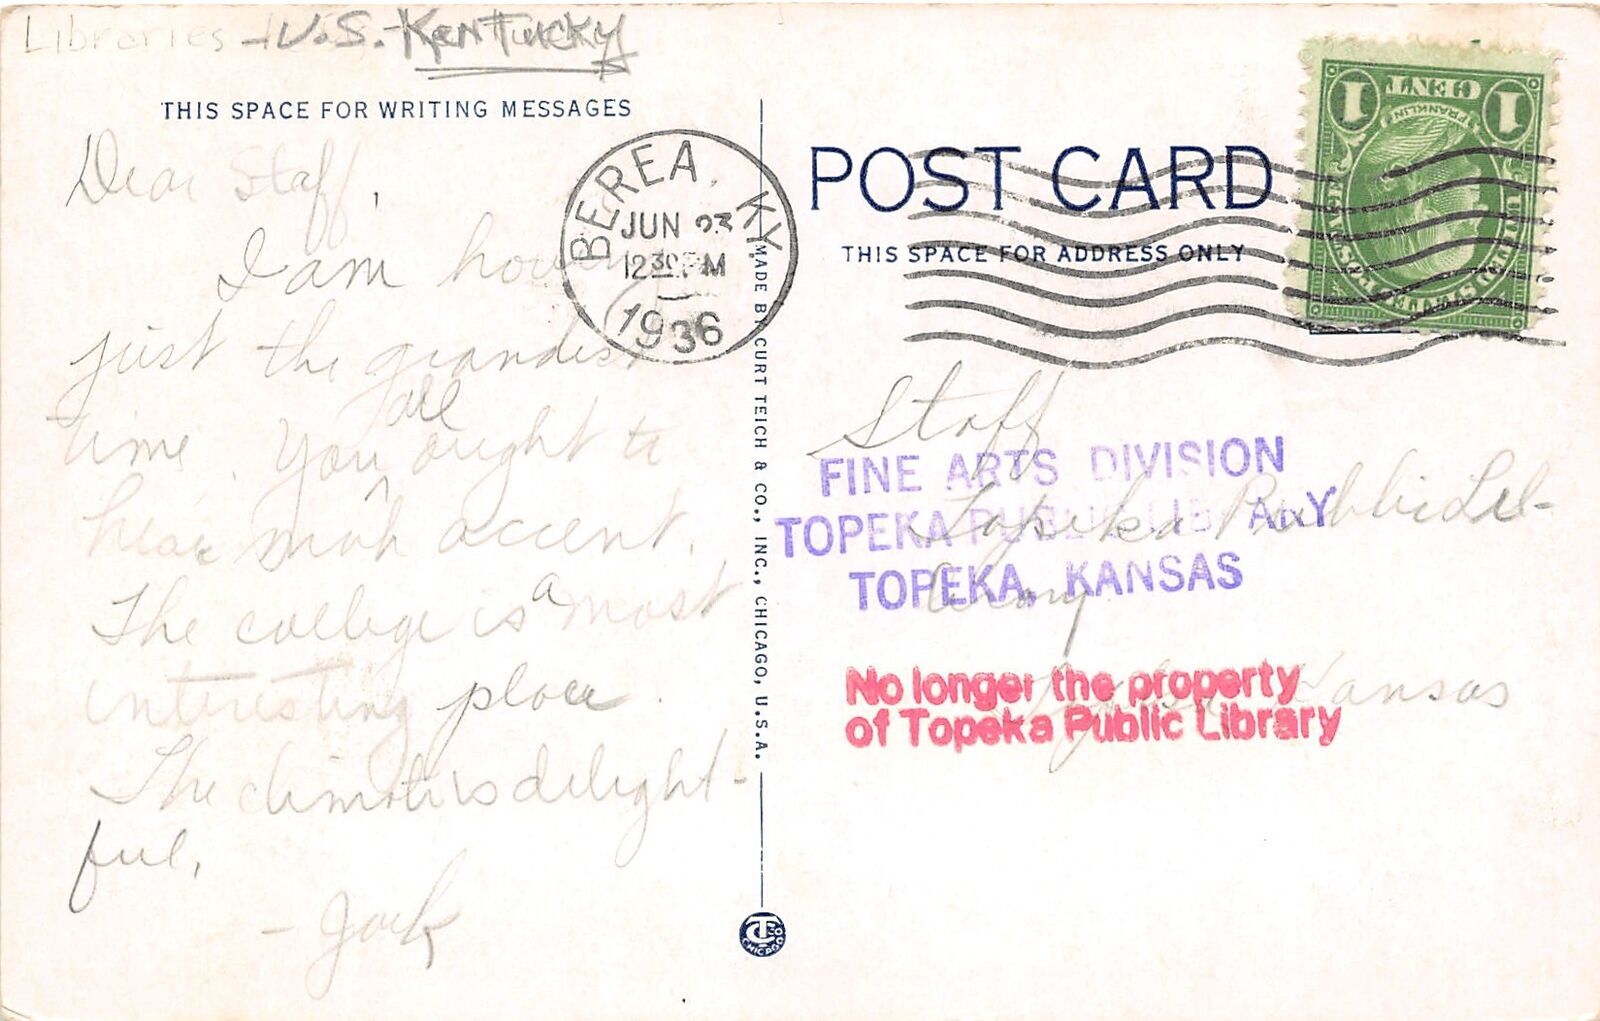 Libraries - U.S. - Kentucky
THIS SPACE FOR WRITING MESSAGES
Dear Staff,
I am
just the grandest
time. You all ought to
hear mah accent.
The college is a most
interesting place.
The climate is delight-
ful.
- Jack
BEREA, KY.
JUN 23
12 30 PM
1936
MADE BY CURT TEICH & CO., INC., CHICAGO, U.S.A.
CT CHICAGO
POST CARD
THIS SPACE FOR ADDRESS ONLY
1 CENT 1
FRANKLIN
UNITED STATES POSTAGE
Staff
Topeka Public Lib-
rary
Topeka Kansas
FINE ARTS DIVISION
TOPEKA PUBLIC LIBRARY
TOPEKA, KANSAS
No longer the property
of Topeka Public Library